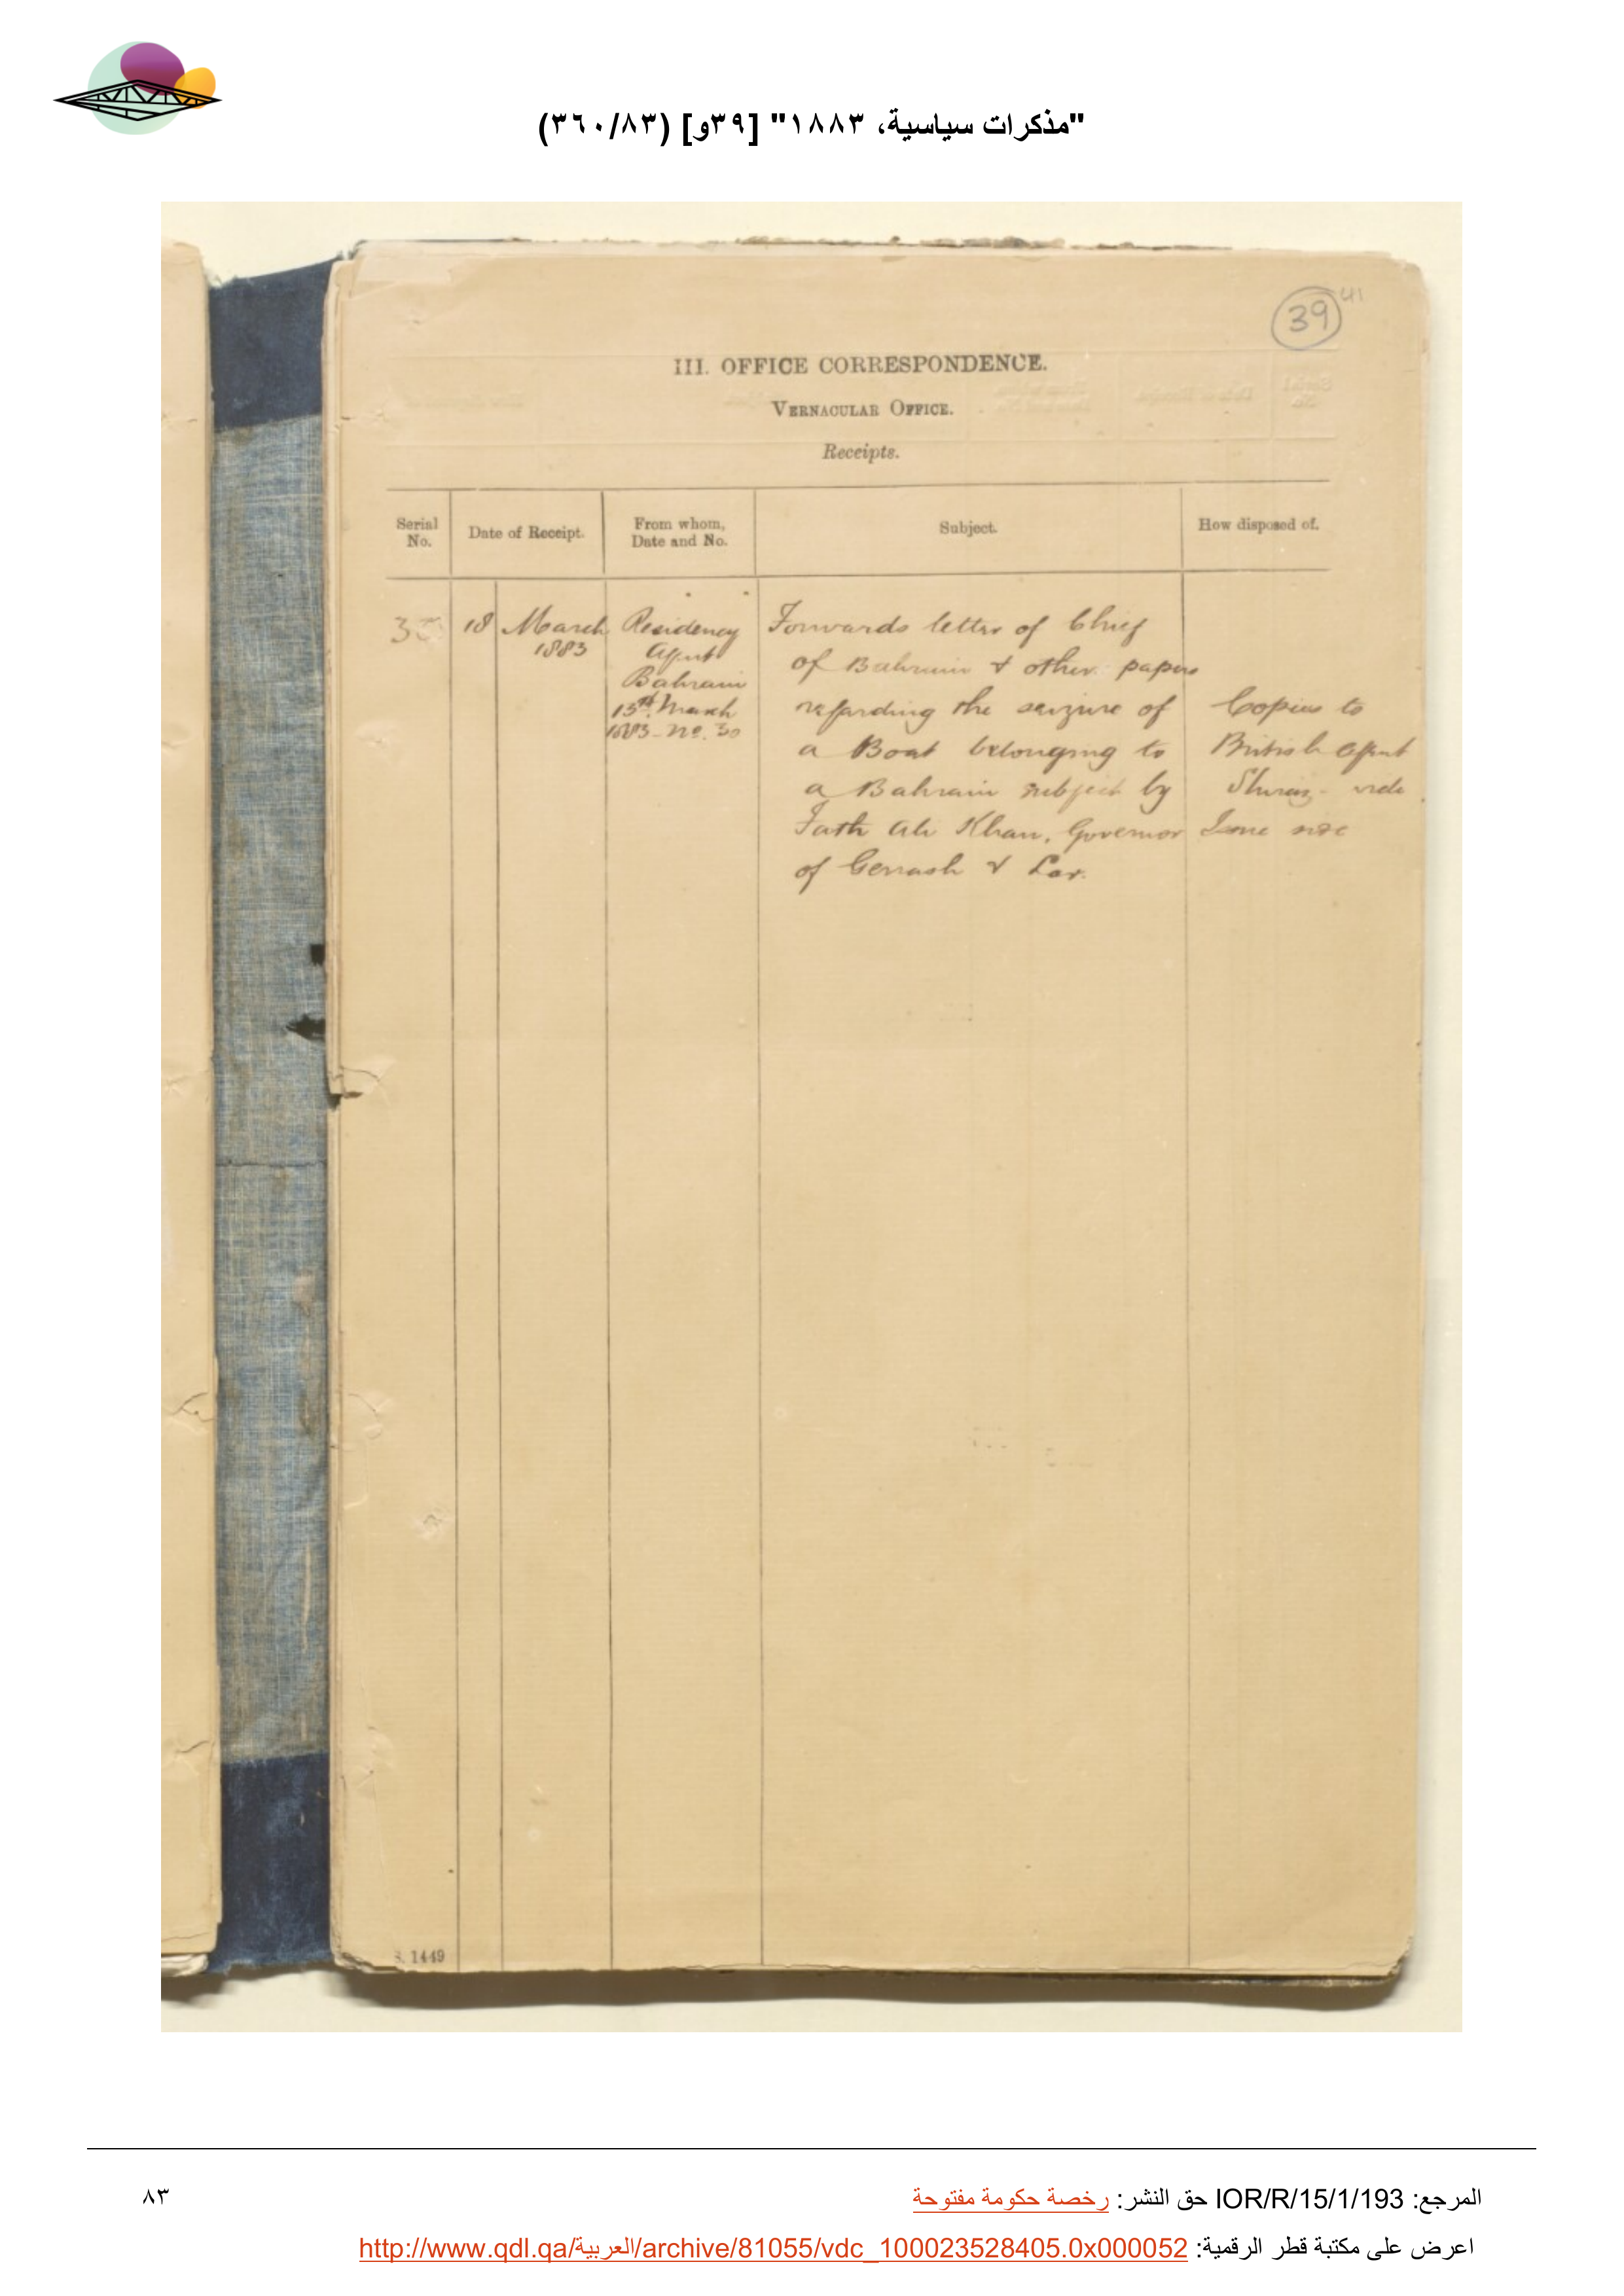 "مذكرات سياسية، ١٨٨٣" [٣٩و] (٣٦٠/٨٣)
39 41
III. OFFICE CORRESPONDENCE.
VERNACULAR OFFICE.
Receipts.
Serial No.
Date of Receipt.
From whom, Date and No.
Subject.
How disposed of.
18 March
1883
Residency
Agent
Bahrain
13th March
1883 - No. 30
Forwards letter of Chief
of Bahrain & other papers
regarding the seizure of
a Boat belonging to
a Bahrain subject by
Fath Ali Khan, Governor
of Gerrash & Lar.
Copies to
British Agent
Shiraz - vide
Issue
1449
المرجع: IOR/R/15/1/193 حق النشر: رخصة حكومة مفتوحة
٨٣
اعرض على مكتبة قطر الرقمية: http://www.qdl.qa/العربية/archive/81055/vdc_100023528405.0x000052